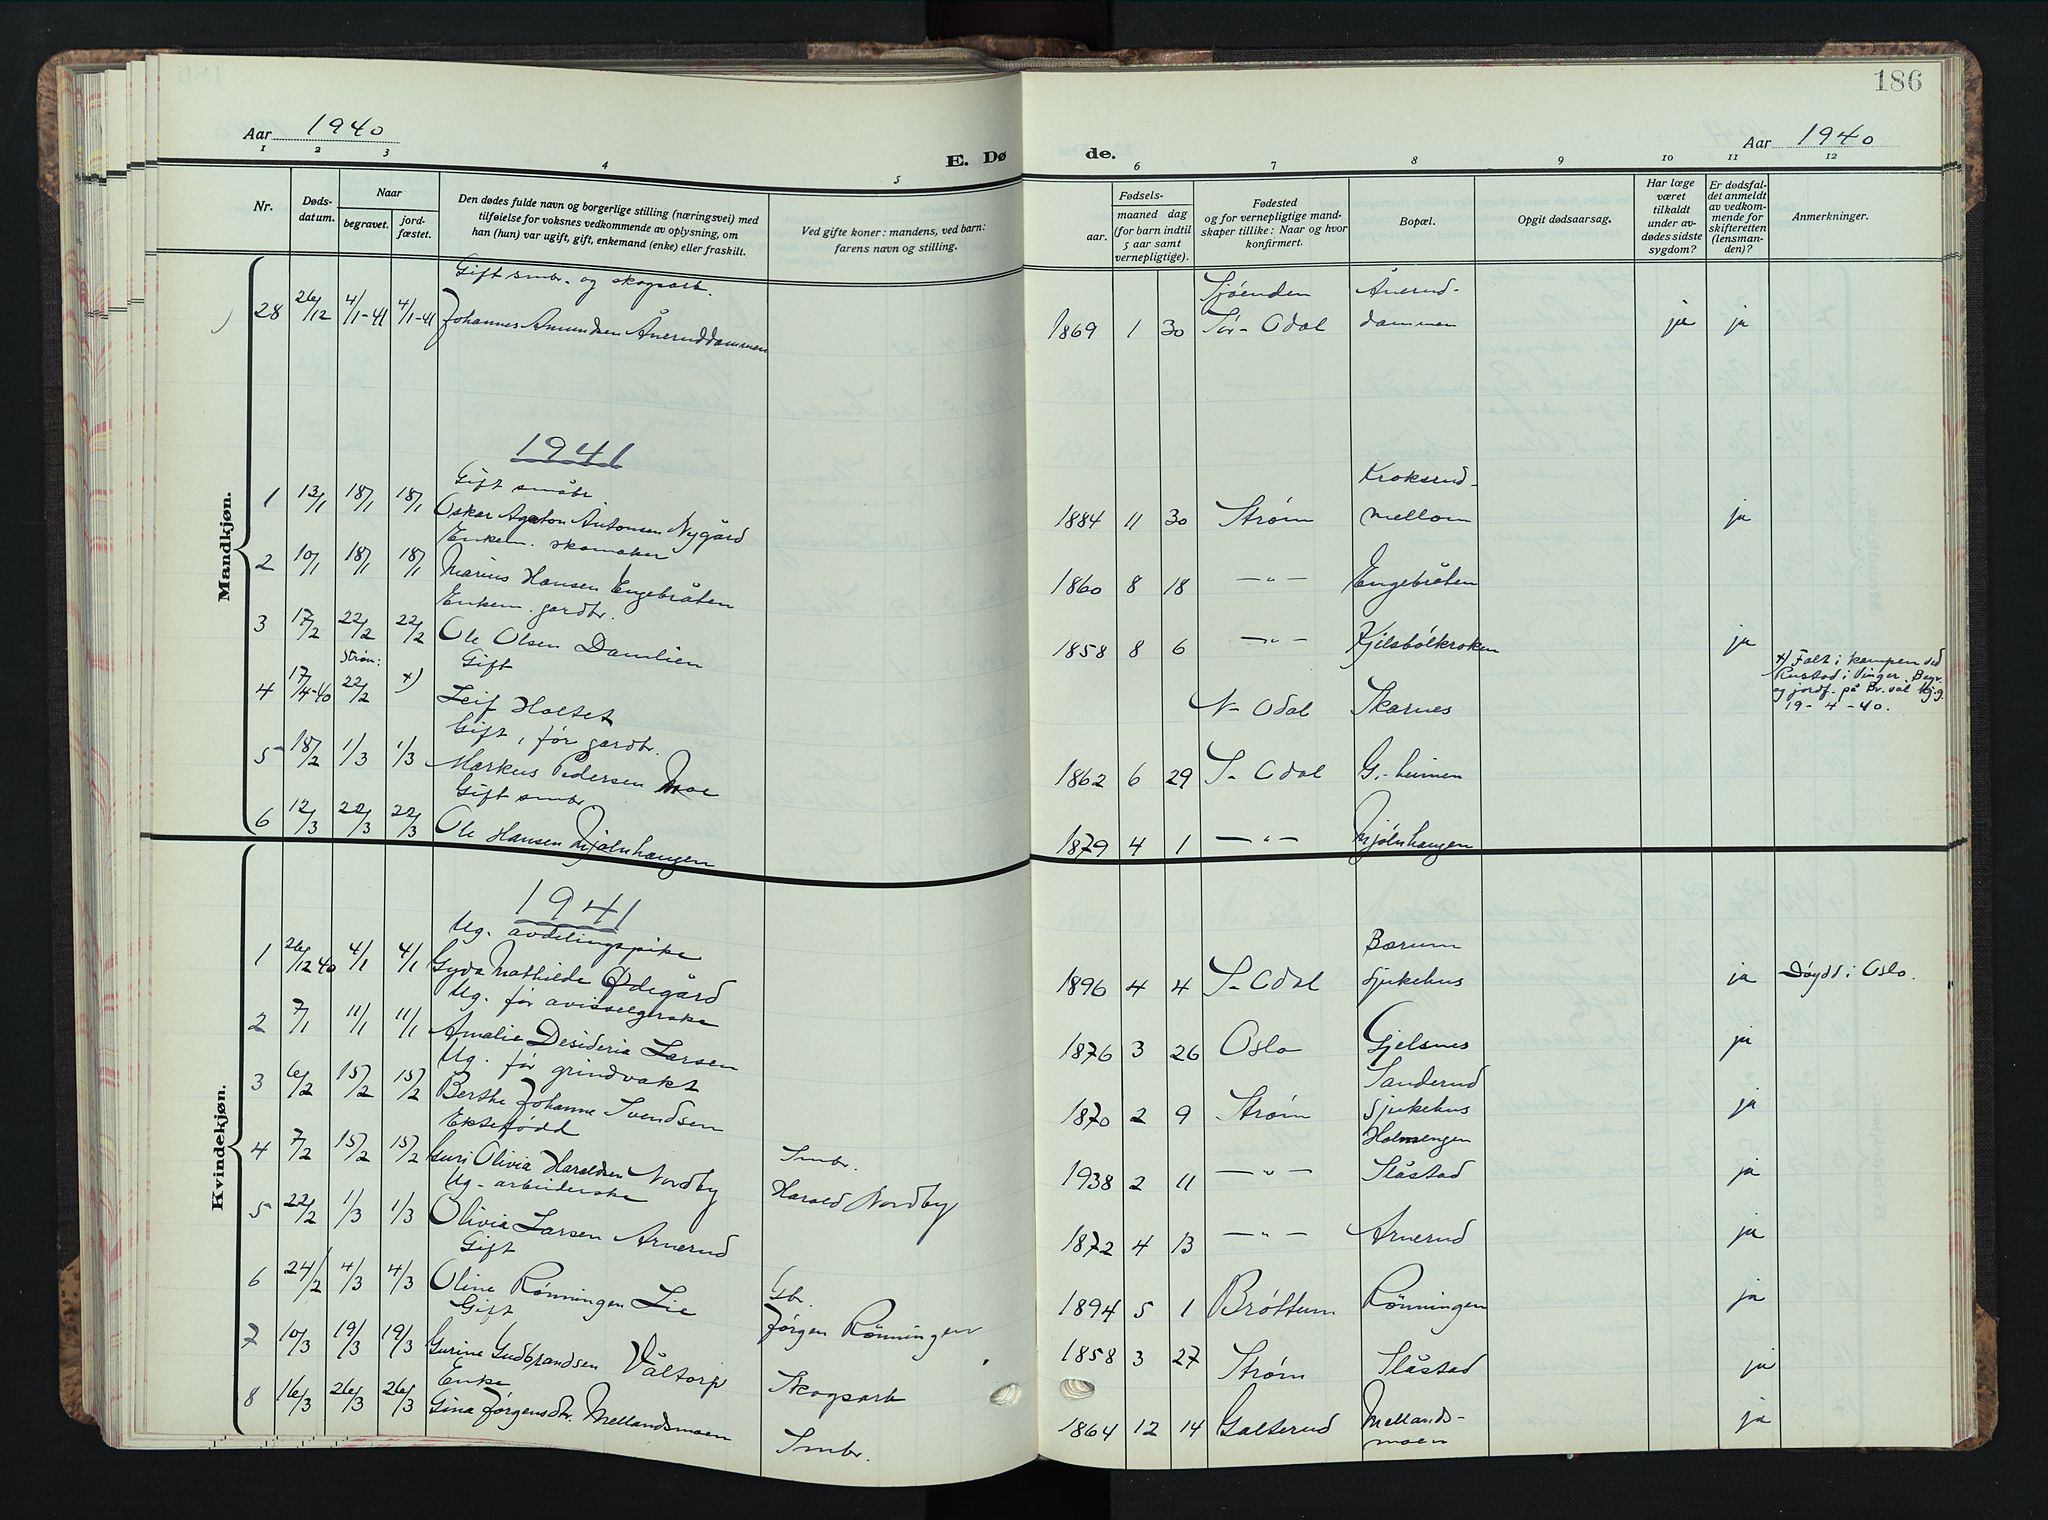 186
Aar 1940
E. Dø de.
Aar 1940
1 2 3 4 5 6 7 8 9 10 11 12
Nr.
Døds-
datum.
Naar
begravet.
jord-
fæstet.
Den dødes fulde navn og borgerlige stilling (næringsvei) med
tilføielse for voksnes vedkommende av oplysning, om
han (hun) var ugift, gift, enkemand (enke) eller fraskilt.
Ved gifte koner: mandens, ved barn:
farens navn og stilling.
Fødsels-
aar.
maaned dag
(for barn indtil
5 aar samt
vernepligtige).
Fødested
og for vernepligtige mand-
skaper tillike: Naar og hvor
konfirmert.
Bopæl.
Opgit dødsaarsag.
Har læge
været
tilkaldt
under av-
dødes sidste
sygdom?
Er dødsfal-
det anmeldt
av vedkom-
mende for
skifteretten
(lensman-
den)?
Anmerkninger.
Mandkjøn.
Gift smbr. og skogsarb. Sjøenden Ånerud-
28 26/12 4/1-41 4/1-41 Johannes Amundsen Åneruddammen 1869 1 30 Sør-Odal dammen ja ja
1941
Gift småbr. Kroksrud-
1 13/1 18/1 18/1 Oskar Agaton Antonsen Nygård 1884 11 30 Strøm mellom ja
Enkem. skomaker
2 10/1 18/1 18/1 Marius Hansen Engebråten 1860 8 18 —"— Engebråten
Enkem. gardbr.
3 17/2 22/2 22/2 Ole Olsen Damlien 1858 8 6 —"— Kjilsbölkroken ja
Strøm: Gift
4 17/4-40 22/2 x) Leif Holtet N-Odal Skarnes
x) Falt i kampen ved
Rustad i Vinger. Begr.
og jordf. på Br.vål kg.g.
19-4-40.
Gift, før gardbr.
5 18/2 1/3 1/3 Markus Pedersen Moe 1862 6 29 S-Odal G.-heimen
Gift smbr
6 12/3 22/3 22/3 Ole Hansen Mjølnhaugen 1879 4 1 —"— Mjølnhaugen
Kvindekjøn.
1941
Ug. avdelingspike Bærum
1 26/12 40 4/1 4/1 Gyda Mathilde Ødegård 1896 4 4 S-Odal sjukehus ja Döydd i Oslo.
Ug. før avisselgerske
2 7/1 11/1 11/1 Amalie Desideria Larsen 1876 3 26 Oslo Gjelsnes ja
Ug. før grindvakt Sanderud
3 6/2 15/2 15/2 Berthe Johanne Svendsen 1870 2 9 Strøm sjukehus ja
Ektefødd Holmengen
4 7/2 15/2 15/2 Guri Olivia Haraldsen Nordby Smbr. Harald Nordby 1938 2 11 —"— Slåstad ja
Ug. arbeiderske
5 22/2 1/3 1/3 Olivia Larsen Arnerud 1872 4 13 —"— Arnerud ja
Gift
6 24/2 4/3 4/3 Oline Rønningen Lie Gbr. Jørgen Rönningen 1894 5 1 Bröttum Rönningen ja
Gift
7 10/3 19/3 19/3 Gurine Gudbrandsen Våltorp Skogsarb 1858 3 27 Strøm Slåstad ja
Enke
8 16/3 26/3 26/3 Gina Jørgensdtr. Mellandsmoen Smbr. 1864 12 14 Galterud Mellands-
moen ja